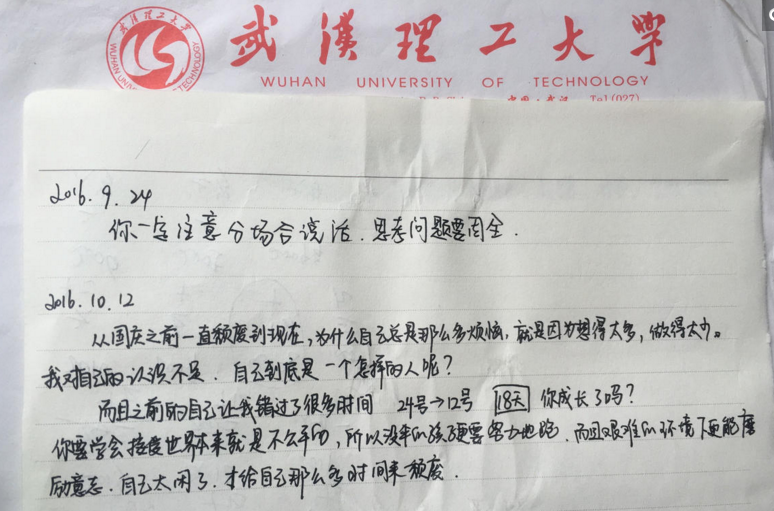 武汉理工大学
WUHAN UNIVERSITY OF TECHNOLOGY
Tel(027)
2016.9.24
你一定注意分场合说话.思考问题要周全.
2016.10.12
从国庆之前一直颓废到现在,为什么自己总是那么多烦恼,就是因为想得太多,做得太少。
我对自己的认识不足.自己到底是一个怎样的人呢?
而且之前的自己让我错过了很多时间 24号→12号 18天 你成长了吗?
你要学会接受世界本来就是不公平的,所以没伞的孩子更要努力地跑.而且艰难的环境下更能磨
励意志.自己太闲了.才给自己那么多时间来颓废.